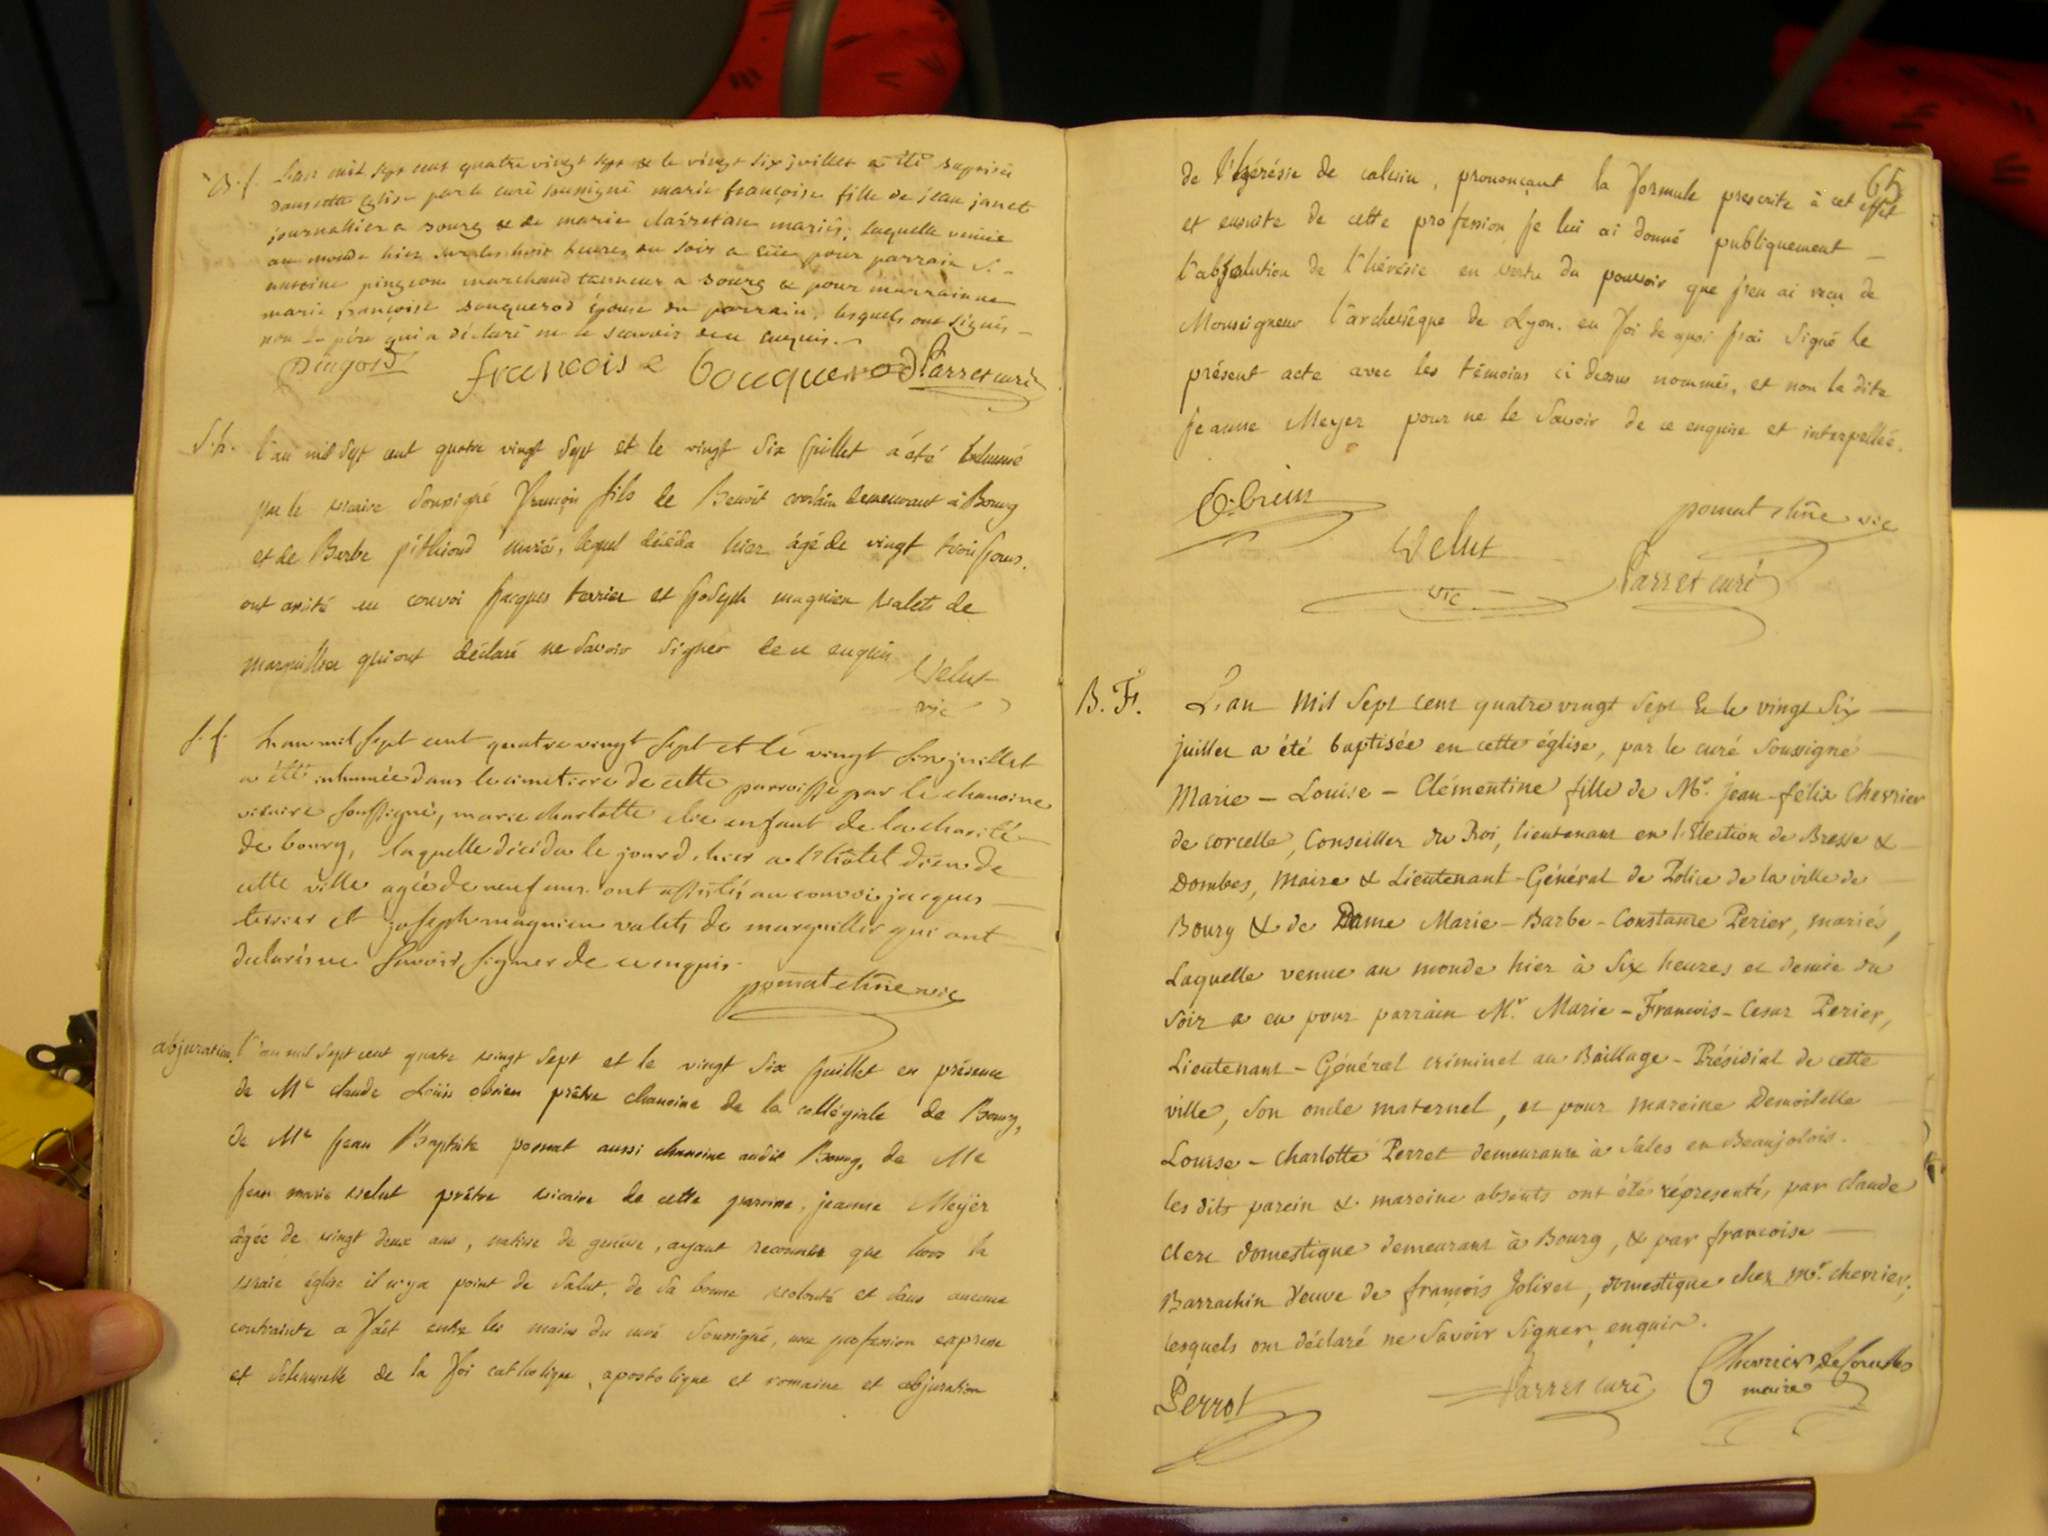 B.f. L'an mil sept cent quatre vingt sept & le vingt six juillet a été baptisée
dans cette eglise par le curé soussigné marie françoise fille de jean janet
journallier a bourg & de marie mariés, laquelle venüe
au monde hier sur les huit heures du soir a eüe pour parrain s.
antoine pingeon marchand tanneur a bourg & pour marrainne
marie françoise bouquerod épouse du parrain, lesquels ont signés
non le père qui a déclaré ne le scavoir de ce enquis.
francoise bouquerod Parret curé
S.h. l'an mil sept cent quatre vingt sept et le vingt six juillet a été inhumé
par le vicaire soussigné françois fils de Benoît demeurant à Bourg
et de Barbe pithioud mariés, lequel décéda hier âgé de vingt trois jours.
ont assisté au convoi jacques terrier et joseph magnien valets de
marguillier qui ont déclaré ne savoir signer de ce enquis
Velut
vic
S.f. L'an mil sept cent quatre vingt sept et le vingt six juillet
a été inhumée dans le cimetiere de cette parroisse par le chanoine
vicaire soussigné, marie charlotte enfant de la charité
de bourg, laquelle décéda le jourd'hier a l'hôtel dieu de
cette ville agée de neuf ans. ont assistés au convoi jacques
terrier et joseph magnien valets de marguillier qui ont
declarés ne savoir signer de ce enquis.
pomat chne vic
abjuration. l'an mil sept cent quatre vingt sept et le vingt six juillet en présence
de Me claude Loüis obrien prêtre chanoine de la collégiale de Bourg,
de Me jean Baptiste pomat aussi chanoine audit Bourg, de Me
jean marie velut prêtre vicaire de cette paroisse, jeanne Meÿer
âgée de vingt deux ans, native de genève, ayant reconnu que hors la
vraie église il n'y a point de salut, de sa bonne volonté et sans aucune
contrainte a fait entre les mains du curé soussigné, une profession expresse
et solemnelle de la foi catholique, apostolique et romaine et abjuration
65
de l'hérésie de calvin, prononçant la formule prescrite à cet effet
et ensuite de cette profession je lui ai donné publiquement
l'absolution de l'hérésie en vertu du pouvoir que j'en ai reçu de
Monseigneur l'archevêque de Lyon. en foi de quoi j'ai signé le
présent acte avec les témoins ci dessus nommés, et non la dite
jeanne Meyer pour ne le savoir de ce enquise et interpellée.
pomat chne vic
Velut
vic
Parret curé
B. F. L'an Mil Sept cent quatre vingt Sept & le vingt Six
juillet a été baptisée en cette église, par le curé Soussigné
Marie - Louise - Clémentine fille de Mr. jean-félix Chevrier
de corcelle, Conseiller du Roi, lieutenant en l'Election de Bresse &
Dombes, Maire & Lieutenant-Général de Police de la ville de
Bourg & de Dame Marie - Barbe - Constance Perier, mariés,
Laquelle venue au monde hier à Six heures et demie du
Soir a eu pour parrain Mr. Marie - François - Cesar Perier,
Lieutenant - Général criminel au Baillage - Présidial de cette
ville, Son oncle maternel, et pour mareine Demoiselle
Louise - Charlotte Perret demeurante à Sales en Beaujolois.
les dits parein & mareine absents ont étés réprésentés par claude
clerc domestique demeurant à Bourg, & par francoise
Barrachin veuve de françois Jolivet, domestique chez Mr. chevrier,
lesquels ont déclaré ne Savoir Signer enquis.
Perrot Parret curé Chevrier de Corcelles
maire